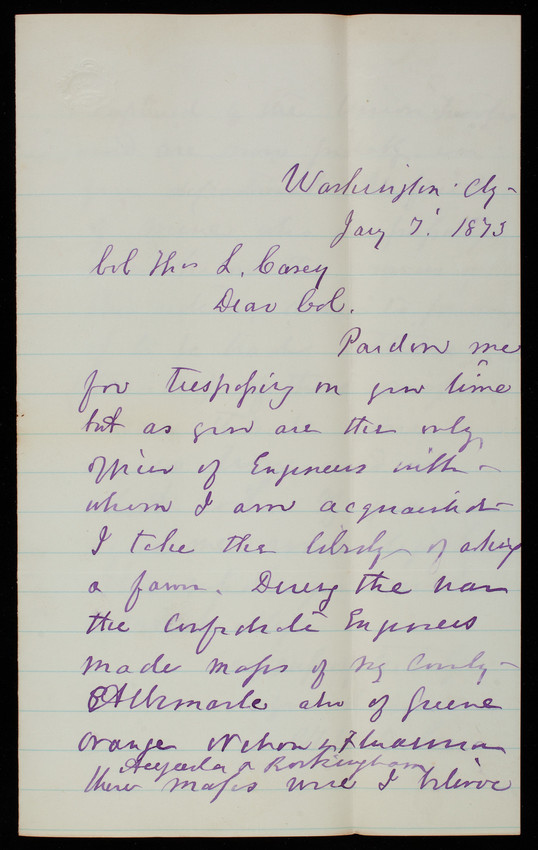 Washington City
Jany 7. 1873
Col Thos L. Casey
Dear Col.
Pardon me
for trespassing on your time
but as you are the only
officer of Engineers with
whom I am acquainted
I take the liberty of asking
a favor. During the war
the Confederate Engineers
made maps of my County
Albemarle also of Greene
Orange Nelson & Fluvanna
Augusta & Rockingham
these maps were I believe